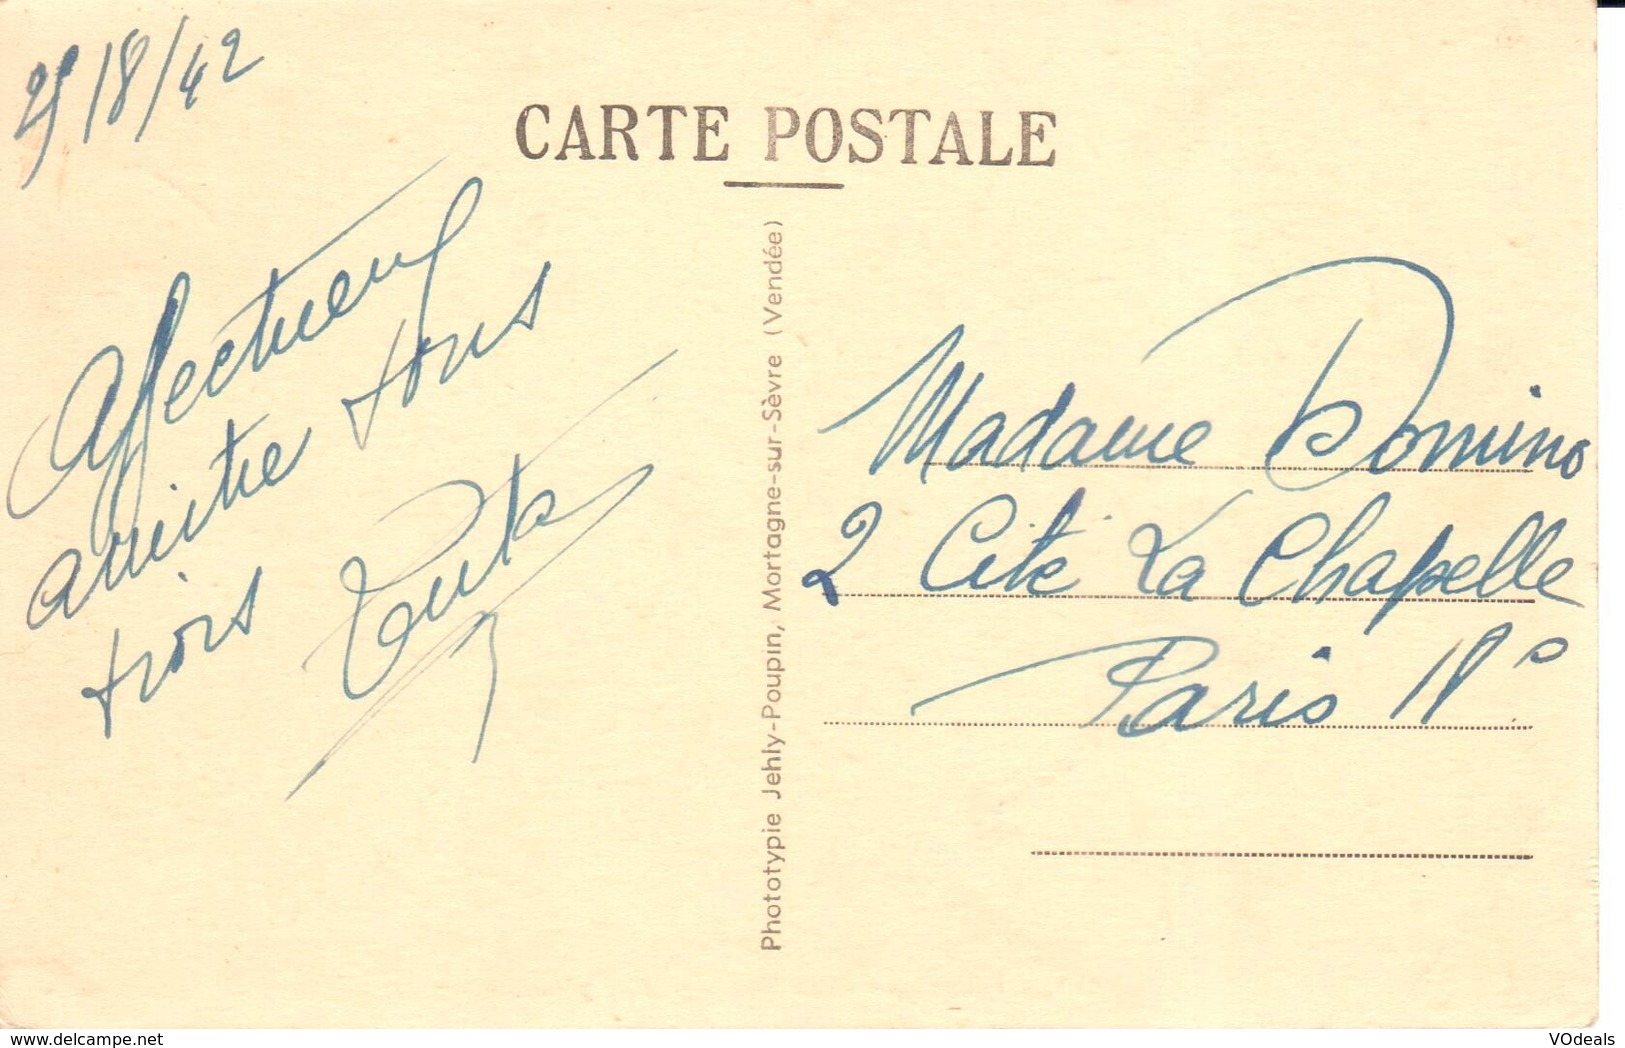 25/8/42
CARTE POSTALE
Affectueux
amitié tous
trois
Phototypie Jehly-Poupin, Mortagne-sur-Sèvre (Vendée)
Madame Domino
2 Cité La Chapelle
Paris
www.delcampe.net
VOdeals